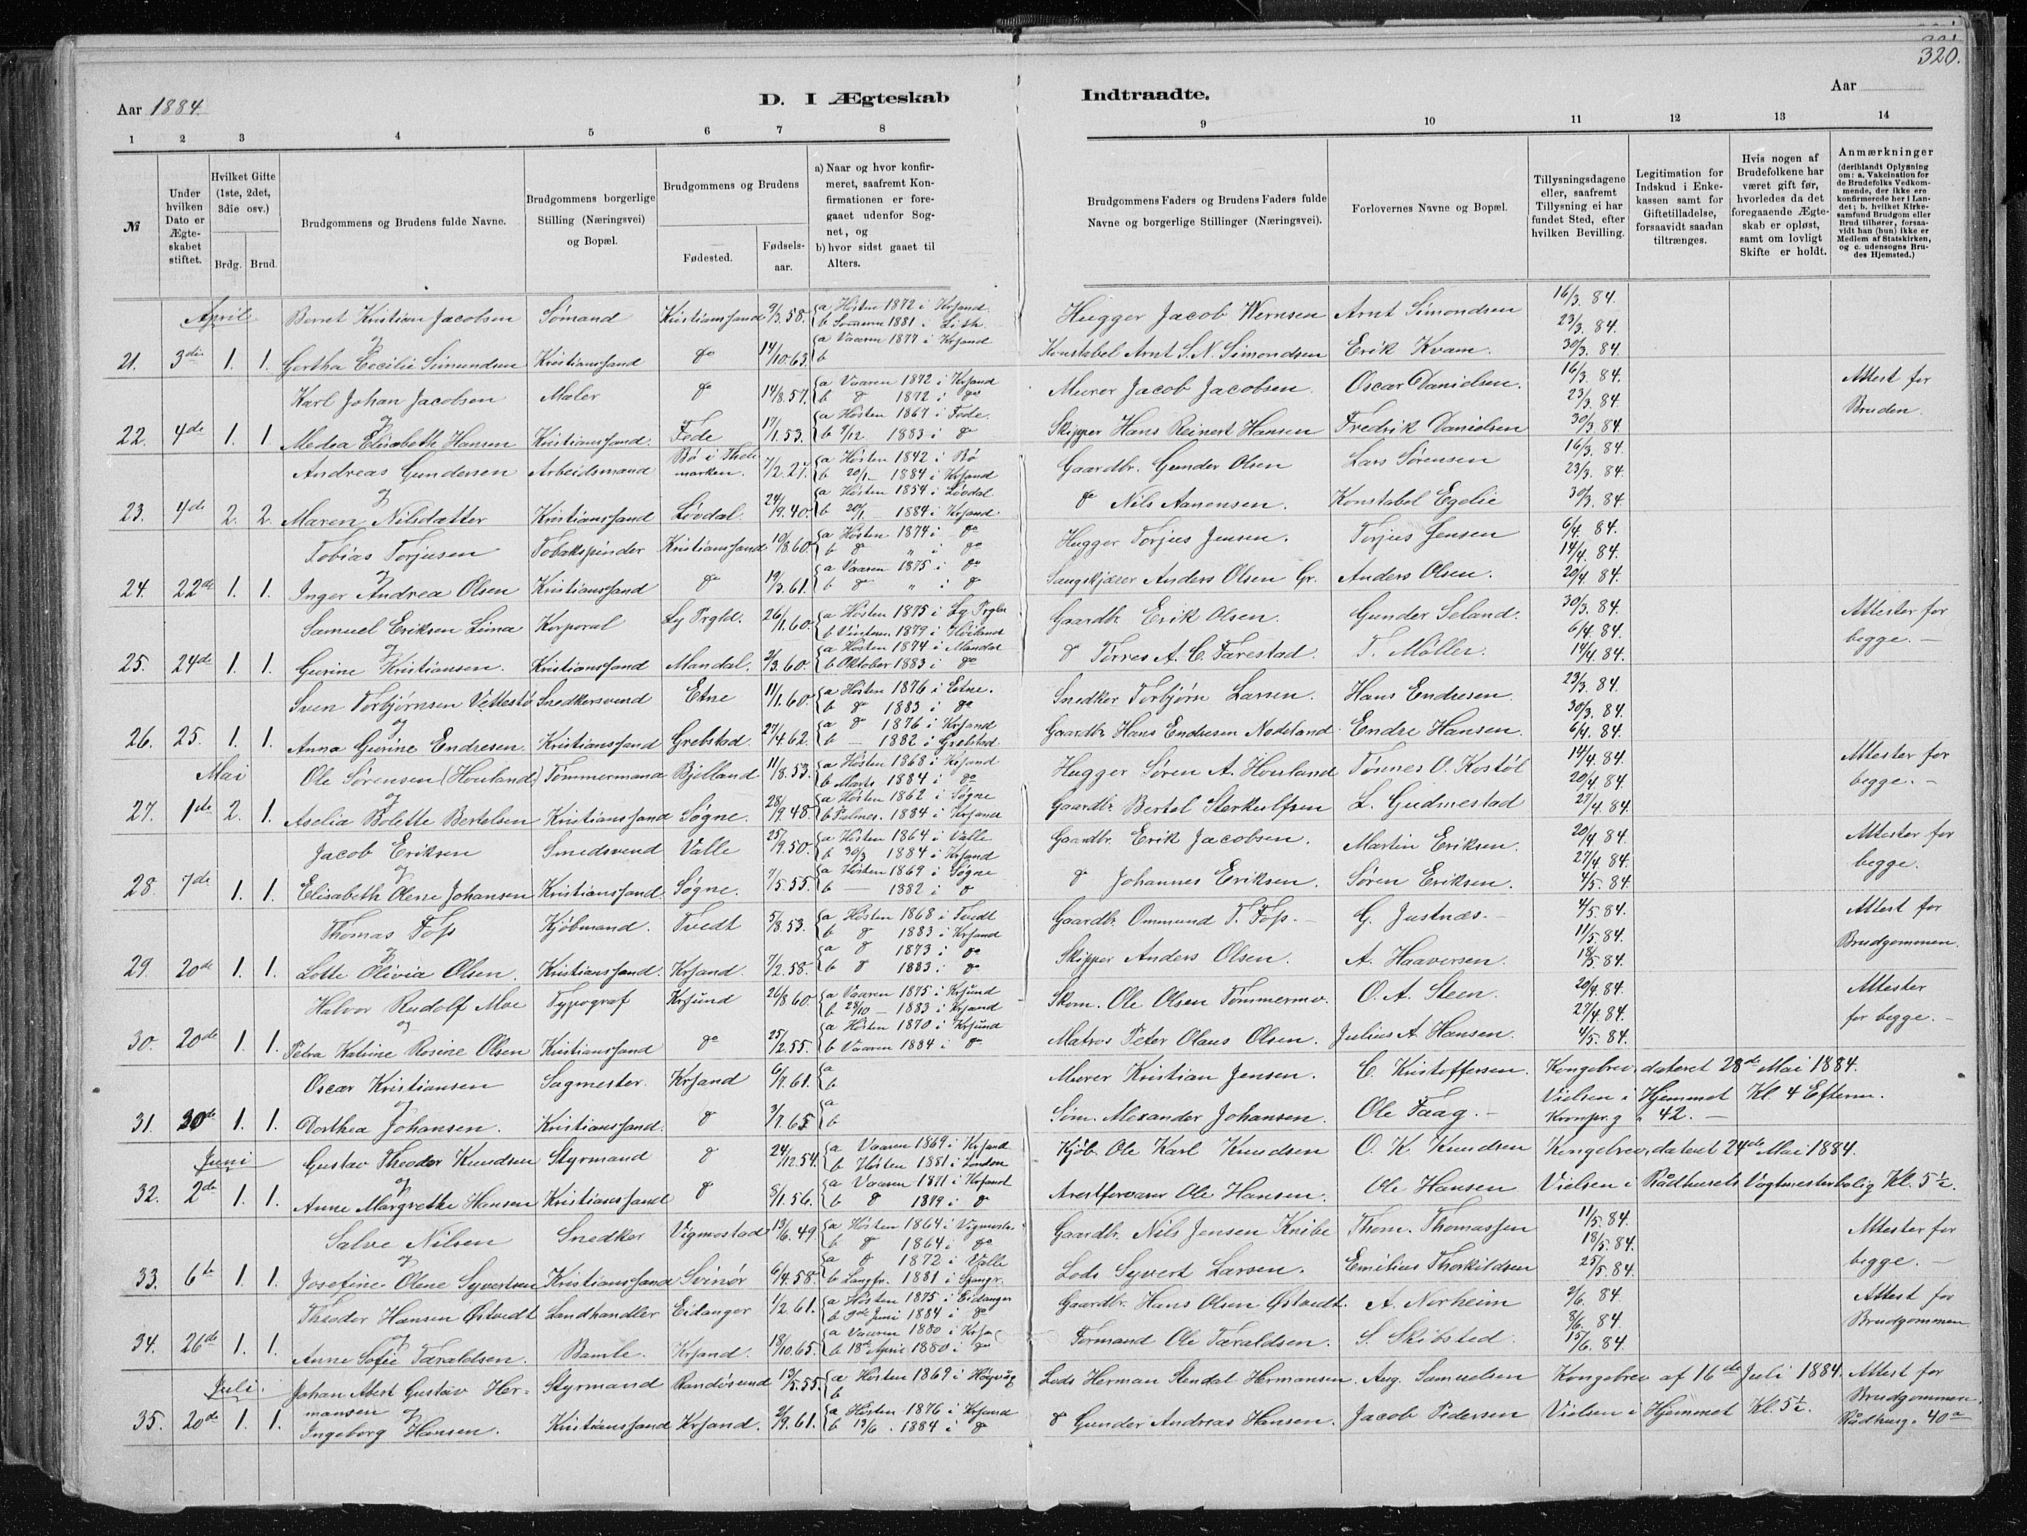 320.
Aar 1884.
D. I Ægteskab
Indtraadte.
Aar
1 2 3 4 5 6 7 8 9 10 11 12 13 14
№
Under hvilken Dato er Ægteskabet stiftet.
Hvilket Gifte (1ste, 2det, 3die osv.)
Brdg. Brud.
Brudgommens og Brudens fulde Navne.
Brudgommens borgerlige Stilling (Næringsvei) og Bopæl.
Brudgommens og Brudens
Fødested.
Fødselsaar.
a) Naar og hvor konfirmeret, saafremt Konfirmationen er foregaaet udenfor Sognet, og
b) hvor sidst gaaet til Alters.
Brudgommens Faders og Brudens Faders fulde Navne og borgerlige Stillinger (Næringsvei).
Forlovernes Navne og Bopæl.
Tillysningsdagene eller, saafremt Tillysning ei har fundet Sted, efter hvilken Bevilling.
Legitimation for Indskud i Enkekassen samt for Giftetilladelse, forsaavidt saadan tiltrænges.
Hvis nogen af Brudefolkene har været gift før, hvorledes da det foregaaende Ægteskab er opløst, samt om lovligt Skifte er holdt.
Anmærkninger (deriblandt Oplysning om: a. Vakcination for de Brudefolks Vedkommende, der ikke ere konfirmerede her i Landet; b. hvilket Kirkesamfund Brudgom eller Brud tilhører, forsaavidt han (hun) ikke er Medlem af Statskirken, og c. udensogns Brudes Hjemsted.)
April Bernt Kristian Jacobsen Sømand Kristianssand 9/3.58. a Høsten 1872 i Krsand Hugger Jacob Wernsen Arnt Simondsen 16/3.84.
og b Sommeren 1881 i Lith 23/3.84.
21. 3die 1. 1. Gertha Cecilie Simundsen Kristianssand do 14/10.63. a Vaaren 1877 i Krsand b Konstabel Arnt S. N. Simondsen Erik Kvam. 30/3.84.
Karl Johan Jacobsen Maler do 14/8.57. a Vaaren 1872 i Krsand b do 1872 i do Murer Jacob Jacobsen. Oscar Danielsen. 16/3.84. 23/3.84. Attest for
22. 4de 1. 1 Medea Elisabeth Hansen Kristianssand. Fede 17/1.53. a Høsten 1867 i Fede. b 9/12 1883 i do Skipper Hans Reinert Hansen Fredrik Danielsen 30/3.84. Bruden.
Andreas Gundersen Arbeidsmand Bø i Thelemarken. 7/2.27. a Høsten 1842 i Bø b 20/1 1884 i Krsand Gaardbr. Gunder Olsen Lars Sørensen 16/3.84. 23/3.84.
og
23. 4de 2. 2. Maren Nilsdatter Kristianssand Løvdal. 24/9.40. a Høsten 1854 i Løvdal b 20/1 1884 i Krsand. do Nils Aanensen. Konstabel Egelie 30/3.84.
Tobias Torjusen Tobakspinder Kristianssand 10/8.60. a Høsten 1874 i do b do " i do Hugger Torjus Jensen. Torjus Jensen 6/4.84. 14/4.84.
og
24. 22de 1. 1. Inger Andrea Olsen Kristianssand do 19/3.61. a Vaaren 1875 i do b do " i do Anders Olsen Gr. Anders Olsen. 20/4.84.
Samuel Eriksen Korporal Ly Prgld. 26/1.60. a Høsten 1875 i Ly Prgld b 1879 i Gaardbr Erik Olsen. Gunder Seland. 30/3.84. 6/4.84. Attester for
25. 24de 1. 1. Gurine Kristiansen. Kristianssand Mandal. 2/3.60. a Høsten 1874 i Mandal b Oktober 1883 i do do Tørres A. C. Færestad. T. Møller. 14/4.84. begge. —
Sven Torbjørnsen Vettestø Snedkersvend Etne 11/1.60. a Høsten 1876 i Etne. b do 1883 i do Snedker Torbjørn Larsen. Hans Endresen. 23/3.84. 30/3.84.
og
26. 25. 1. 1. Anna Gurine Endresen Kristianssand Grebstad. 27/4.62. a do 1876 i Krsand b — 1882 i Grebstad. Gaardbr Hans Endresen Nodeland Endre Hansen. 6/4.84.
Mai Ole Sørensen (Houland) Tømmermand Bjelland 11/8.53. a Høsten 1868 i Krsand b Marts 1884 i do Hugger Søren A. Houland Tønnes O. Kostøl 14/4.84. 20/4.84. Attester for
27. 1ste 2. 1. Aselia Bolette Bertelsen Kristianssand Søgne. 28/9.48. a Høsten 1862 i Søgne b 1884 i Krsand Gaardbr Bertel Sterkulfsen L. Gudmestad 27/4.84. begge. —
Jacob Eriksen Smedsvend Valle 25/9.50. a Høsten 1864 i Valle b 30/3 1884 i Krsand Gaardbr. Erik Jacobsen Martin Eriksen. 20/4.84. 27/4.84. Attester for
28. 7de 1. 1. Elisabeth Olene Johansen Kristianssand. Søgne. 7/5.55. a Høsten 1869 i Søgne b — 1882 i do do Johannes Eriksen. Søren Eriksen. 4/5.84. begge.
Thomas Foss Kjøbmand. Tvedt 5/8.53. a Høsten 1868 i Tvedt b do 1883 i Krsand Gaardbr Ommund T. Foss. — G. Justnæs. — 4/5.84. 11/5.84. Attest for
29. 20de 1. 1. Lotte Olivia Olsen. Kristianssand. Krsand. 7/2.58. a do 1873 i do b do 1883. i do Skipper Anders Olsen. A. Haaversen. 18/5.84. Brudgommen.
Halvor Rudolf Moe Typograf Krsund 26/8.60. a Vaaren 1875 i Krsund b 28/10 — 1883 i Krsand Skom. Ole Olsen Tømmermo. O. A. Steen. 20/4.84. 27/4.84. Attester
og
30. 20de 1. 1. Petra Katrine Rosine Olsen Kristianssand do 25/2.55. a Høsten 1870 i Krsund b Vaaren 1884 i do Matros Peter Olaus Olsen. Julius A. Hansen. 4/5.84. for begge. —
Oscar Kristiansen Sagmester. Krsand 6/7.61. a b Murer Kristian Jensen. C. Kristoffersen. Kongebrev, dateret 28de Mai 1884.
og Vielsen i Hjemmet Kl 4 Efterm.
31. 30de 1. 1 Dorthea Johansen. Kristianssand. do 3/7.65 a b Søm. Alexander Johansen. Ole Faag. — 42. —
Juni Gustav Theodor Knudsen Styrmand do 24/12.54. a Vaaren 1869 i Krsand b Høsten 1881 i London Kjøb. Ole Karl Knudsen O. K. Knudsen Kongebrev, dateret 24de Mai 1884.
32. 2de 1. 1. Anne Margrethe Hansen Kristianssand do 8/1.56. a Vaaren 1871 i Krsand b do 1879 i do Arestforvarer Ole Hansen. Ole Hansen Vielsen i Rådhusets Vagtmesterbolig Kl. 5½.
Salve Nilsen Snedker Vigmostad 13/6.49 a Høsten 1864 i Vigmostad b do 1864 i do Gaardbr. Nils Jensen Knibe Thom. Thomassen 11/5.84. 18/5.84. Attester for
33. 6te 1. 1. Josefine Olene Syvertsen Kristianssand Svinør. 6/4.58. a do 1872 i Valle b Langfr. 1881 i Spangr. Lods Syvert Larsen. Emilius Thorkildsen 25/5.84. begge. —
Theodor Hansen Østvedt Landhandler Eidanger 1/2.61. a Høsten 1875 i Eidanger b Juni 1884 i do Gaardbr. Hans Olsen Østvedt. A. Norheim 2/6.84. 8/6.84. Attest for
34. 26de 1. 1. Anne Sofie Taraldsen. Bamle. Krsand. 18/10.65. a Vaaren 1880 i Krsa b 18de April 1880 i do Formand Ole Taraldsen. S. Skibsted. 15/6.84. Brudgommen
Juli. Johan Albert Gustav Her- Styrmand Randøsund 13/5.55. a Høsten 1869 i Høgvåg b Lods Herman Stendal Hermansen. Aug. Samuelsen Kongebrev af 16de Juli 1884. Attest for
mansen og Brudgommen.
35. 20de 1. 1. Ingeborg Hansen. Kristianssand Krsand. 2/9.61. a Høsten 1876 i Krsand b 13/6. 1884 i do do Gunder Andreas Hansen. Jacob Pedersen Vielsen i Hjemmet Kl. 5½. Rådhusg. 40a